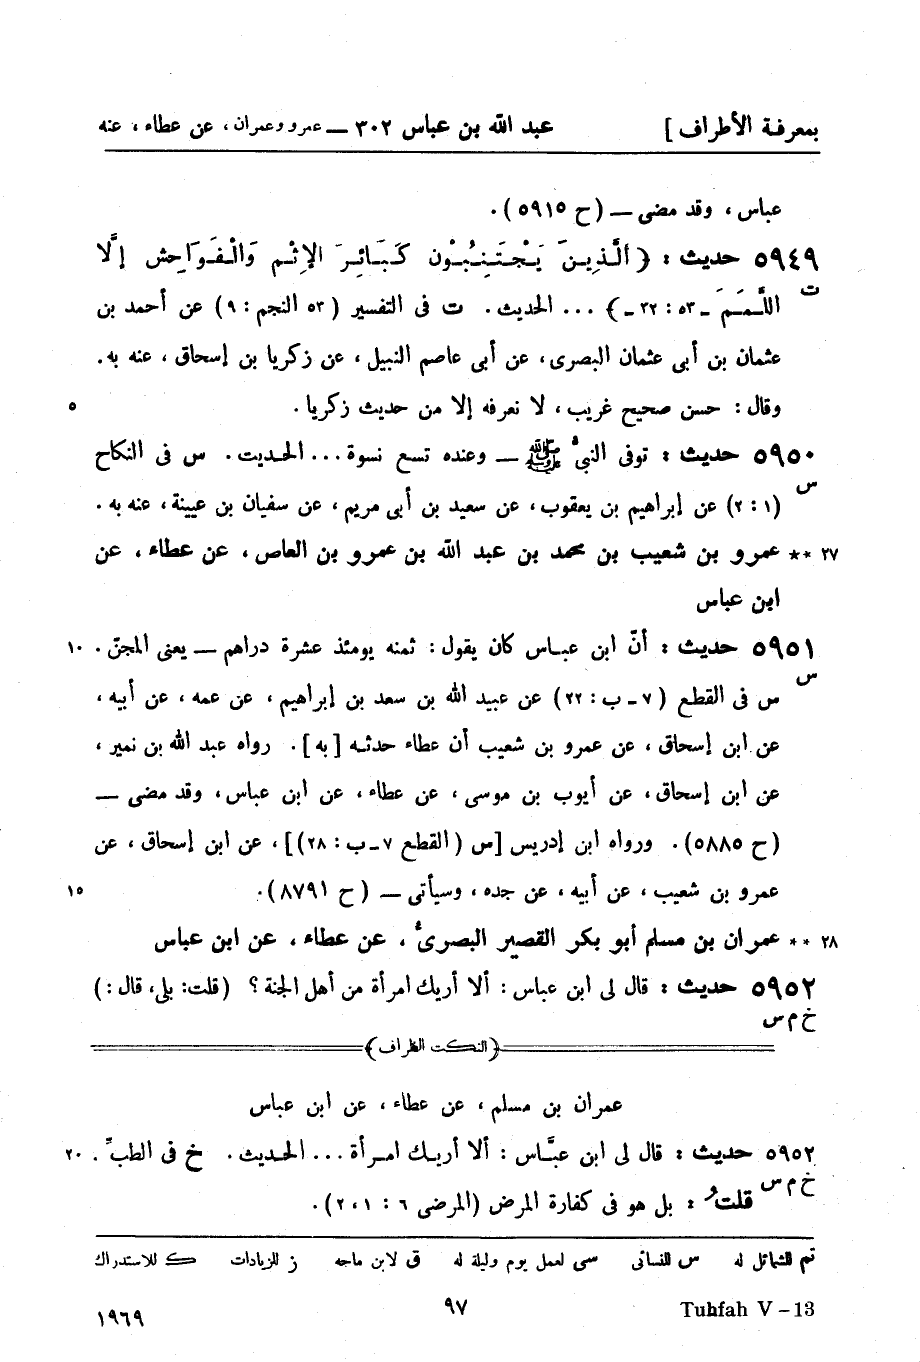 بمعرفة الأطراف ] عبد الله بن عباس ٣٠٢ — عمرو وعمران ، عن عطاء ، عنه
عباس ، وقد مضى — (ح ٥٩١٥) .
٥٩٤٩ حديث : ﴿ اَلَّذِيـنَ يَـجْـتَـنِـبُـوْن كَـبَـائِـرَ الإِثْـم وَالْـفَـوَاحِش إلَّا
ت
اللَّـمَـمَ ـ ٥٣ : ٣٢ ـ ﴾ ... الحديث . ت فى التفسير ( ٥٣ النجم : ٩) عن أحمد بن
عثمان بن أبى عثمان البصرى ، عن أبى عاصم النبيل ، عن زكريا بن إسحاق ، عنه به .
وقال : حسن صحيح غريب ، لا نعرفه إلا من حديث زكريا . ٥
٥٩٥٠ حديث : توفى النبىُّ ﷺ — وعنده تسع نسوة ... الحديث . س فى النكاح
س
(١ : ٢) عن إبراهيم بن يعقوب ، عن سعيد بن أبى مريم ، عن سفيان بن عيينة ، عنه به .
٢٧ ** عمرو بن شعيب بن محمد بن عبد الله بن عمرو بن العاص ، عن عطاء ، عن
ابن عباس
٥٩٥١ حديث : أنّ ابن عبـاس كان يقول : ثمنه يومئذ عشرة دراهم — يعنى المجنّ . ١٠
س
س فى القطع ( ٧ ـ ب : ٢٢) عن عبيد الله بن سعد بن إبراهيم ، عن عمه ، عن أبيه ،
عن ابن إسحاق ، عن عمرو بن شعيب أن عطاء حدثـه [به] . رواه عبد الله بن نمير ،
عن ابن إسحاق ، عن أيوب بن موسى ، عن عطاء ، عن ابن عباس ، وقد مضى —
(ح ٥٨٨٥) . ورواه ابن إدريس [س ( القطع ٧ ـ ب : ٢٨)] ، عن ابن إسحاق ، عن
عمرو بن شعيب ، عن أبيه ، عن جده ، وسيأتى — (ح ٨٧٩١) . ١٥
٢٨ ** عمران بن مسلم أبو بكر القصير البصرىُّ ، عن عطاء ، عن ابن عباس
٥٩٥٢ حديث : قال لى ابن عباس : ألا أريك امرأة من أهل الجنة ؟ (قلت: بلى، قال :)
خ م س
﴿النـكـت الظراف﴾
عمران بن مسلم ، عن عطاء ، عن ابن عباس
٥٩٥٢ حديث : قال لى ابن عبَّـاس : ألا أريـك امـرأة ... الحـديث . خ فى الطبِّ . ٢٠
خ م س
قلتُ : بل هو فى كفارة المرض (المرضى ٦ : ٢،١) .
تم للشمائل له س للنسائى سى لعمل يوم وليلة له ق لابن ماجه ز للزيادات ك للاستدراك
Tuhfah V – 13 ٩٧ ١٩٦٩